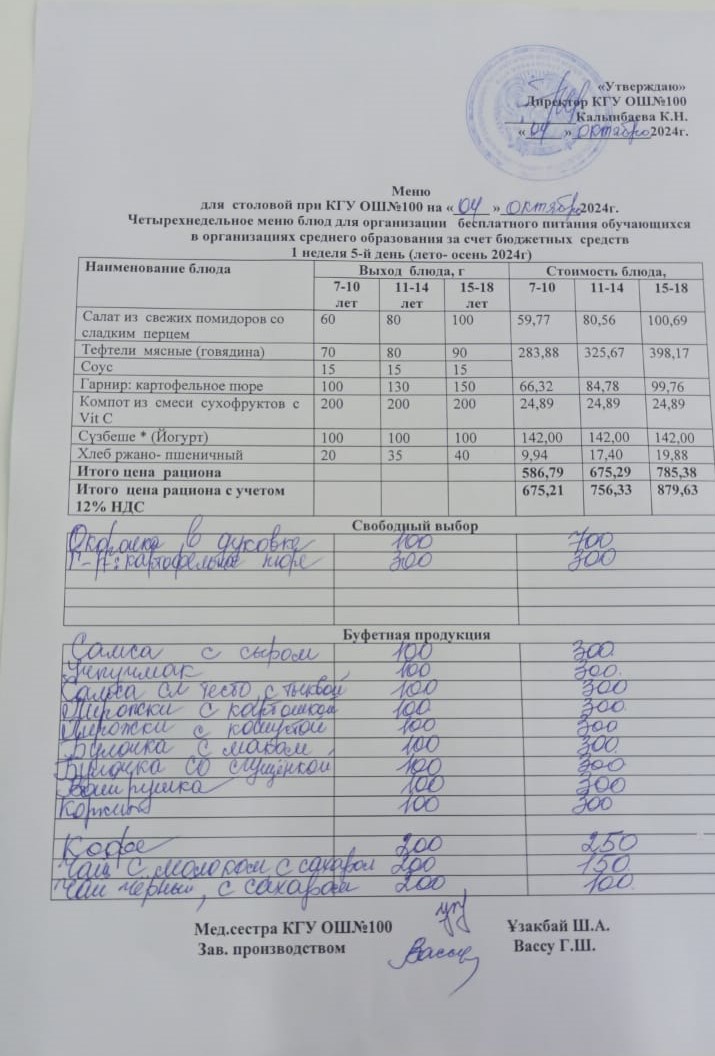 «Утверждаю»
Директор КГУ ОШ№100
Калынбаева К.Н.
« 04 » октября 2024г.
Меню
для столовой при КГУ ОШ№100 на « 04 » октября 2024г.
Четырехнедельное меню блюд для организации бесплатного питания обучающихся
в организациях среднего образования за счет бюджетных средств
1 неделя 5-й день (лето- осень 2024г)
Наименование блюда Выход блюда, г Стоимость блюда,
7-10 11-14 15-18 7-10 11-14 15-18
лет лет лет
Салат из свежих помидоров со 60 80 100 59,77 80,56 100,69
сладким перцем
Тефтели мясные (говядина) 70 80 90 283,88 325,67 398,17
Соус 15 15 15
Гарнир: картофельное пюре 100 130 150 66,32 84,78 99,76
Компот из смеси сухофруктов с 200 200 200 24,89 24,89 24,89
Vit C
Сүзбеше * (Йогурт) 100 100 100 142,00 142,00 142,00
Хлеб ржано- пшеничный 20 35 40 9,94 17,40 19,88
Итого цена рациона 586,79 675,29 785,38
Итого цена рациона с учетом 675,21 756,33 879,63
12% НДС
Свободный выбор
Окорочка в духовке 100 700
Г-р: картофельное пюре 300 300
Буфетная продукция
Самса с сыром 100 300
Учпучмак 100 300
Самса сл тесто, с тыквой 100 300
Пирожки с картошкой 100 300
Пирожки с капустой 100 300
Булочка с маком 100 300
Булочка со сгущёнкой 100 300
Ватрушка 100 300
Коржик 100 300
Кофе 200 250
Чай с молоком с сахаром 200 150
Чай чёрный, с сахаром 200 100
Мед.сестра КГУ ОШ№100 Ұзакбай Ш.А.
Зав. производством Вассу Г.Ш.